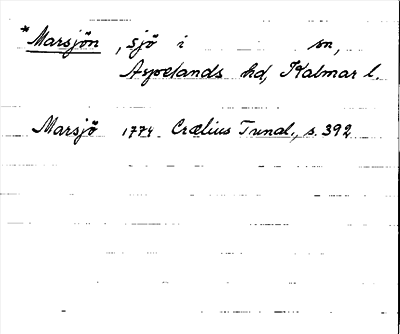 *Marsjön, sjö i sn,
Aspelands hd, Kalmar l.
Marsjö 1774 Crælius Tunal., s. 392